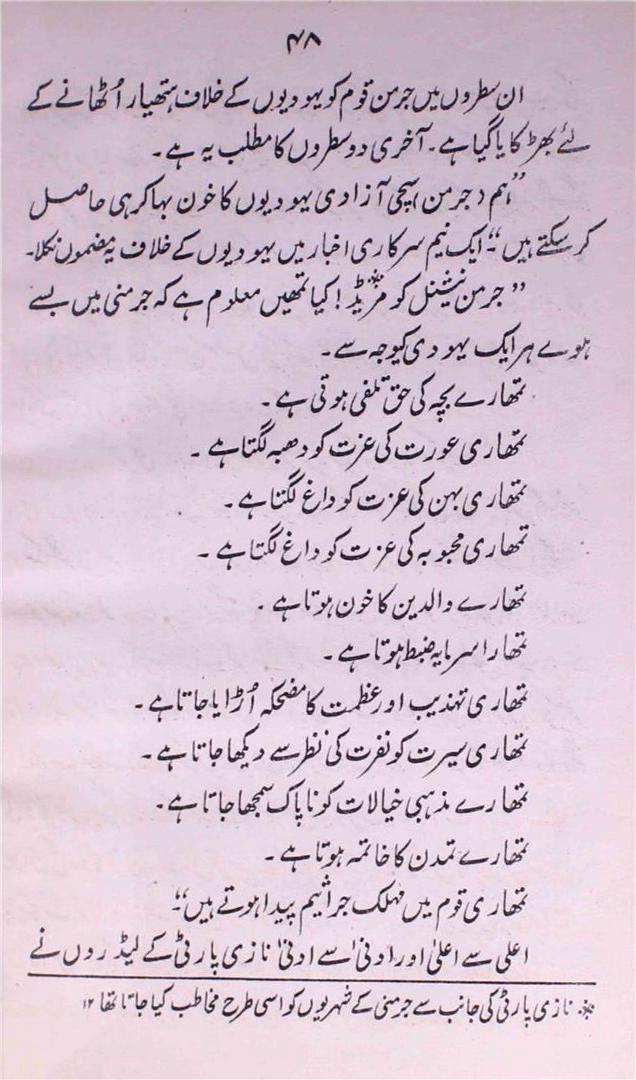 ۴۸
ان سطروں میں جرمن قوم کو یہودیوں کے خلاف ہتھیار اُٹھانے کے
لئے بھڑکایا گیا ہے۔ آخری دو سطروں کا مطلب یہ ہے۔
”ہم (جرمن) سچی آزادی یہودیوں کا خون بہا کر ہی حاصل
کر سکتے ہیں“۔ ایک نیم سرکاری اخبار میں یہودیوں کے خلاف یہ مضمون نکلا۔
”جرمن نیشنل کومریڈ*! کیا تمھیں معلوم ہے کہ جرمنی میں بسے
ہوے ہر ایک یہودی کیوجہ سے۔
تمھارے بچہ کی حق تلفی ہوتی ہے۔
تمھاری عورت کی عزت کو دھبہ لگتا ہے۔
تمھاری بہن کی عزت کو داغ لگتا ہے۔
تمھاری محبوبہ کی عزت کو داغ لگتا ہے۔
تمھارے والدین کا خون ہوتا ہے۔
تمھارا سرمایہ ضبط ہوتا ہے۔
تمھاری تہذیب اور عظمت کا مضحکہ اُڑایا جاتا ہے۔
تمھاری سیرت کو نفرت کی نظر سے دیکھا جاتا ہے۔
تمھارے مذہبی خیالات کو ناپاک سمجھا جاتا ہے۔
تمھارے تمدن کا خاتمہ ہوتا ہے۔
تمھاری قوم میں مہلک جراثیم پیدا ہوتے ہیں“۔
اعلیٰ سے اعلیٰ اور ادنیٰ سے ادنیٰ نازی پارٹی کے لیڈروں نے
* نازی پارٹی کی جانب سے جرمنی کے شہریوں کو اسی طرح مخاطب کیا جاتا تھا ۱۲